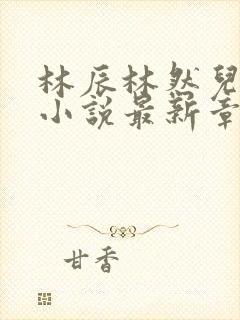 林辰林然兒
小說最新章
甘香